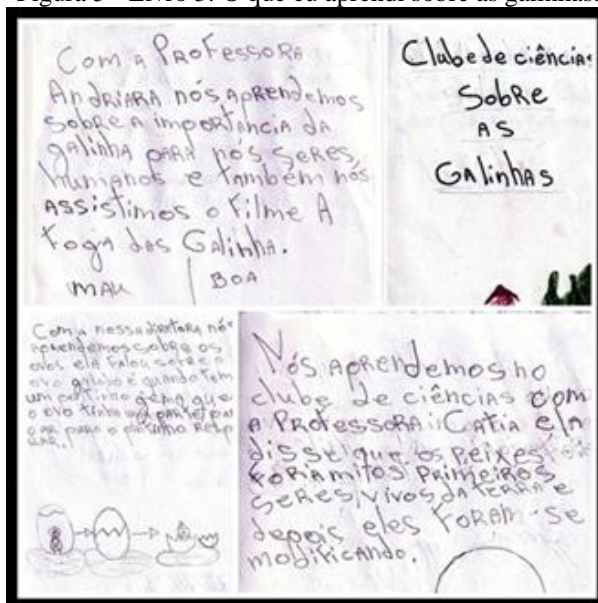 Com a Professora
Andriara nós aprendemos
sobre a importância da
galinha para nós seres
humanos e também nós
assistimos o filme A
foga das Galinha.
mau | BOA
Clube de ciências
Sobre
AS
Galinhas
Com a nossa diretora nós
aprendemos sobre os
ovos ela falou sobre o
ovo galado é quando tem
um pontinho gema que
o ovo tinha uma parte
o ar para o pintinho resp
irar.
Nós aprendemos no
clube de ciências com
a Professora Catia ela
disse que os peixes
foriam primeiros
seres vivos da terra e
depois eles foram-se
modificando.